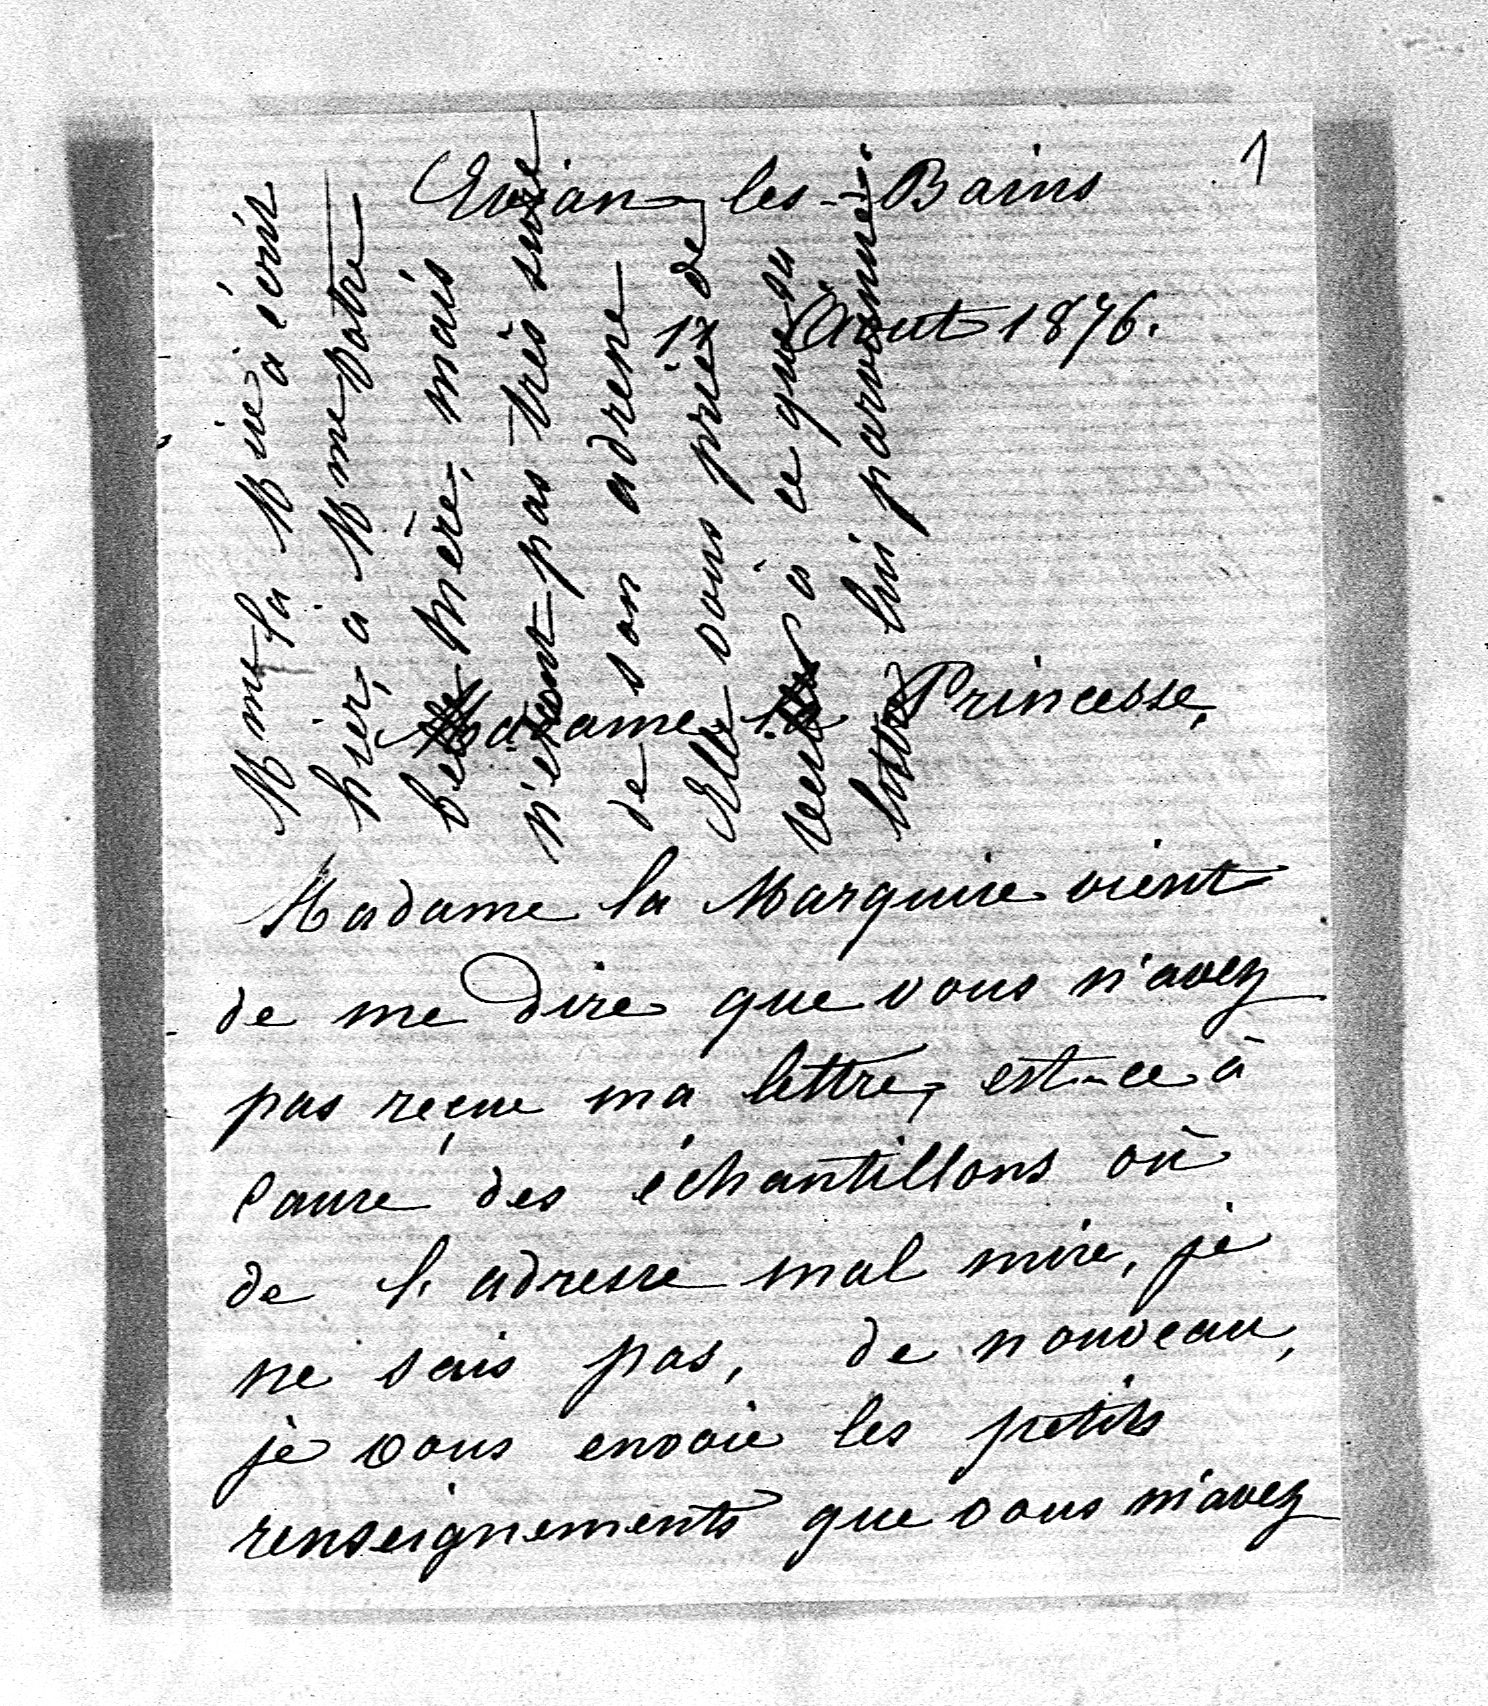 1
Evian les-Bains
17 Aout 1876.
Madame la Princesse,
Madame la Marquise vient
de me dire que vous n'avez
pas reçue ma lettre, est-ce à
cause des échantillons où
de l'adresse mal mise, je
ne sais pas, de nouveau,
je vous envoie les petits
renseignements que vous m'avez
Mme la Mise a écrit
hier, à Mme votre
belle mère, mais
n'etant pas très sure
de son adresse
Elle vous prie de
veiller à ce que sa
lettre lui parvienne.